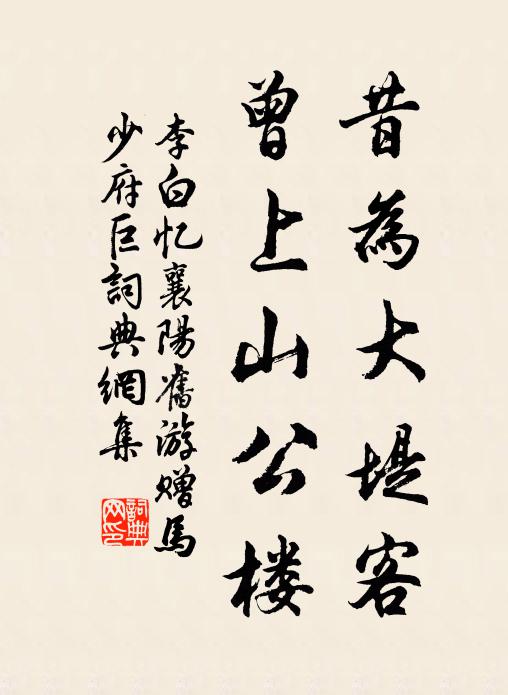 昔為大堤客
曾上山公楼
李白忆襄陽舊游赠馬
少府巨詞典網集
詞典
网印